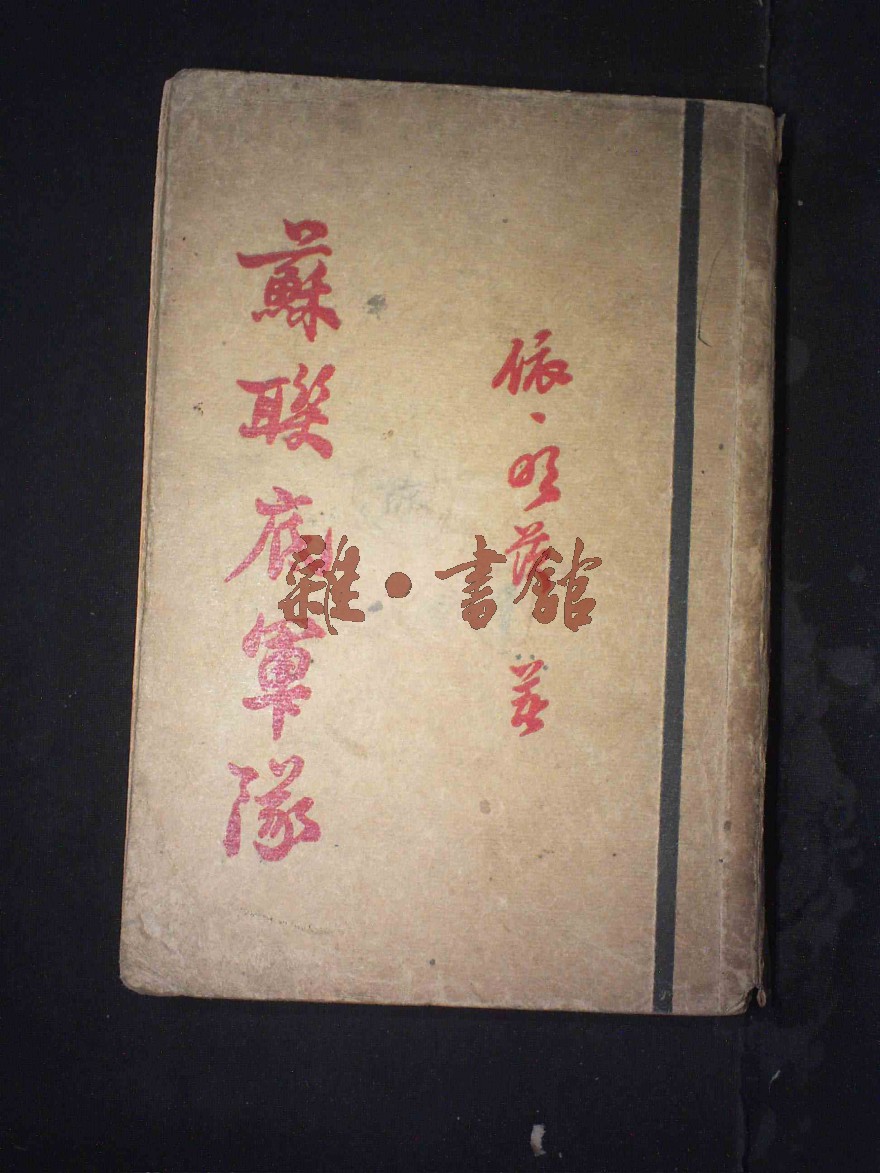 依、明茨 著
蘇聯底軍隊
雜·書館